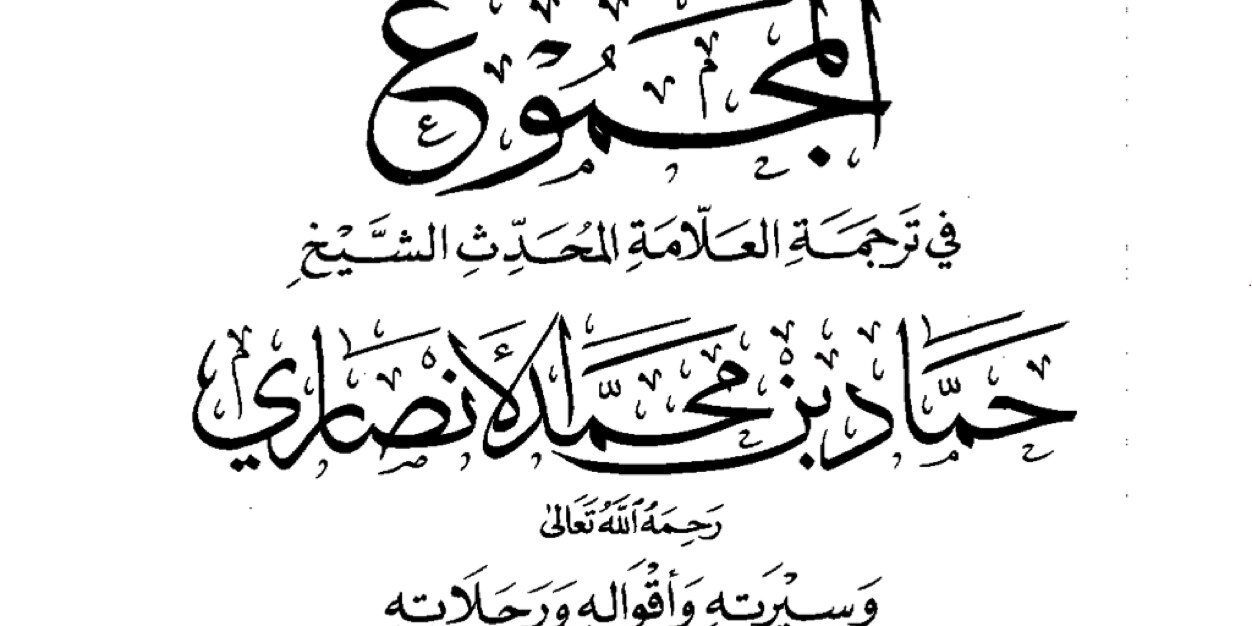 المجموع
في تَرجَمَةِ العَلّامَةِ المُحَدِّثِ الشَّيْخِ
حمَّاد بن محمَّد الأنصَاري
رَحِمَهُ اللَّهُ تَعَالىٰ
وَسيْرَتهِ وَأقْوَالهِ وَرَحلَاته